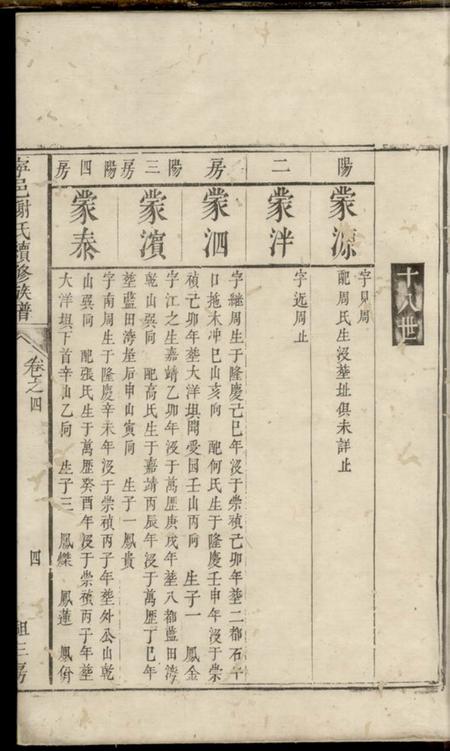 十八世
陽
蒙源
字見周
配周氏生沒塟址俱未詳止
二
蒙泮
字近周止
房
蒙泗
字繼周生于隆慶己巳年沒于崇禎己卯年塟二都石子
口拖木冲巳山亥向 配何氏生于隆慶壬申年沒于崇
禎己卯年塟大洋垻闗愛園壬山丙向 生子一 鳳金
陽三房
蒙濱
字江之生嘉靖乙卯年沒于萬歷庚戌年塟八都藍田湾
乾山巽向 配高氏生于嘉靖丙辰年沒于萬歷丁巳年
塟藍田湾屋后申山寅向 生子一鳳貴
陽四房
蒙泰
字南周生于隆慶辛未年沒于崇禎丙子年塟外公山乾
山巽向 配張氏生于萬歷癸酉年沒于崇禎丙子年塟
大洋垻下首辛山乙向 生子三 鳳傑 鳳蓮 鳳
寧邑謝氏續修族譜
卷之四
四
祖三房